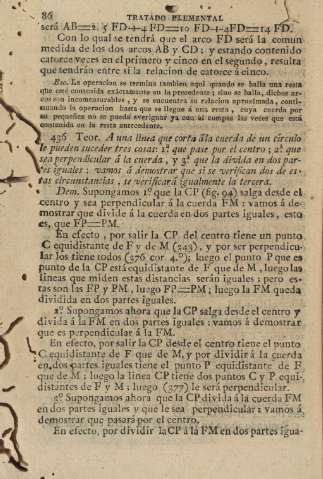 86 TRATADO ELEMENTAL
será AB=2. 5 FD+4 FD=10 FD+4FD=14 FD.
Con lo qual se tendrá que el arco FD será la comun
medida de los dos arcos AB y CD; y estando contenido
catorce veces en el primero y cinco en el segundo, resulta
que tendrán entre sí la relacion de catorce á cinco.
Esc. La operacion se termina tambien aquí quando se halla una resta
que esté contenida exâctamente en la precedente; si no se halla, dichos ar-
cos son incomensurables, y se encuentra su relacion aproxîmada, conti-
nuando la operacion hasta que se llegue á una resta, cuya cuerda por
ser pequeña no se pueda averiguar ya con el compas las veces que está
contenida en la resta antecedente.
436 Teor. A una línea que corta á la cuerda de un círculo
le pueden suceder tres cosas: 1ª que pase por el centro; 2ª que
sea perpendicular á la cuerda, y 3ª que la divida en dos par-
tes iguales: vamos á demostrar que si se verifican dos de es-
tas circunstancias, se verificará igualmente la tercera.
Dem. Supongamos 1º que la CP (fig. 94) salga desde el
centro y sea perpendicular á la cuerda FM: vamos á de-
mostrar que divide á la cuerda en dos partes iguales, esto
es, que FP=PM.
En efecto, por salir la CP del centro tiene un punto
C equidistante de F y de M (343), y por ser perpendicu-
lar los tiene todos (376 cor. 4.º); luego el punto P que es
punto de la CP está equidistante de F que de M, luego las
líneas que miden estas distancias serán iguales: pero es-
tas son las FP y PM, luego FP=PM; luego la FM queda
dividida en dos partes iguales.
2º Supongamos ahora que la CP salga desde el centro y
divida á la FM en dos partes iguales: vamos á demostrar
que es perpendicular á la FM.
En efecto, por salir la CP desde el centro tiene el punto
C equidistante de F que de M, y por dividir á la cuerda
en dos partes iguales tiene el punto P equidistante de F
que de M; luego la línea CP tiene dos puntos C y P equi-
distantes de F y M; luego (377) le será perpendicular.
3º Supongamos ahora que la CP divida á la cuerda FM
en dos partes iguales y que le sea perpendicular: vamos á
demostrar que pasará por el centro.
En efecto, por dividir la CP á la FM en dos partes igua-